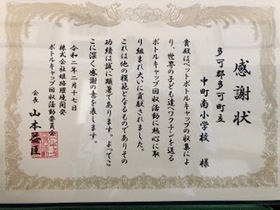 感謝状
多可郡多可町立
中町南小学校 様
貴校はペットボトルキャップの収集によ
り、世界の子ども達へワクチンを送る
ボトルキャップ回収活動に熱心に取
り組まれ大いに貢献されました。
これは他の模範となるものでありその
功績は誠に顕著であります。よってこ
こに深く感謝の意を表します。
令和二年二月十七日
株式会社姫路環境開発
ボトルキャップ回収活動委員会
会長 山本